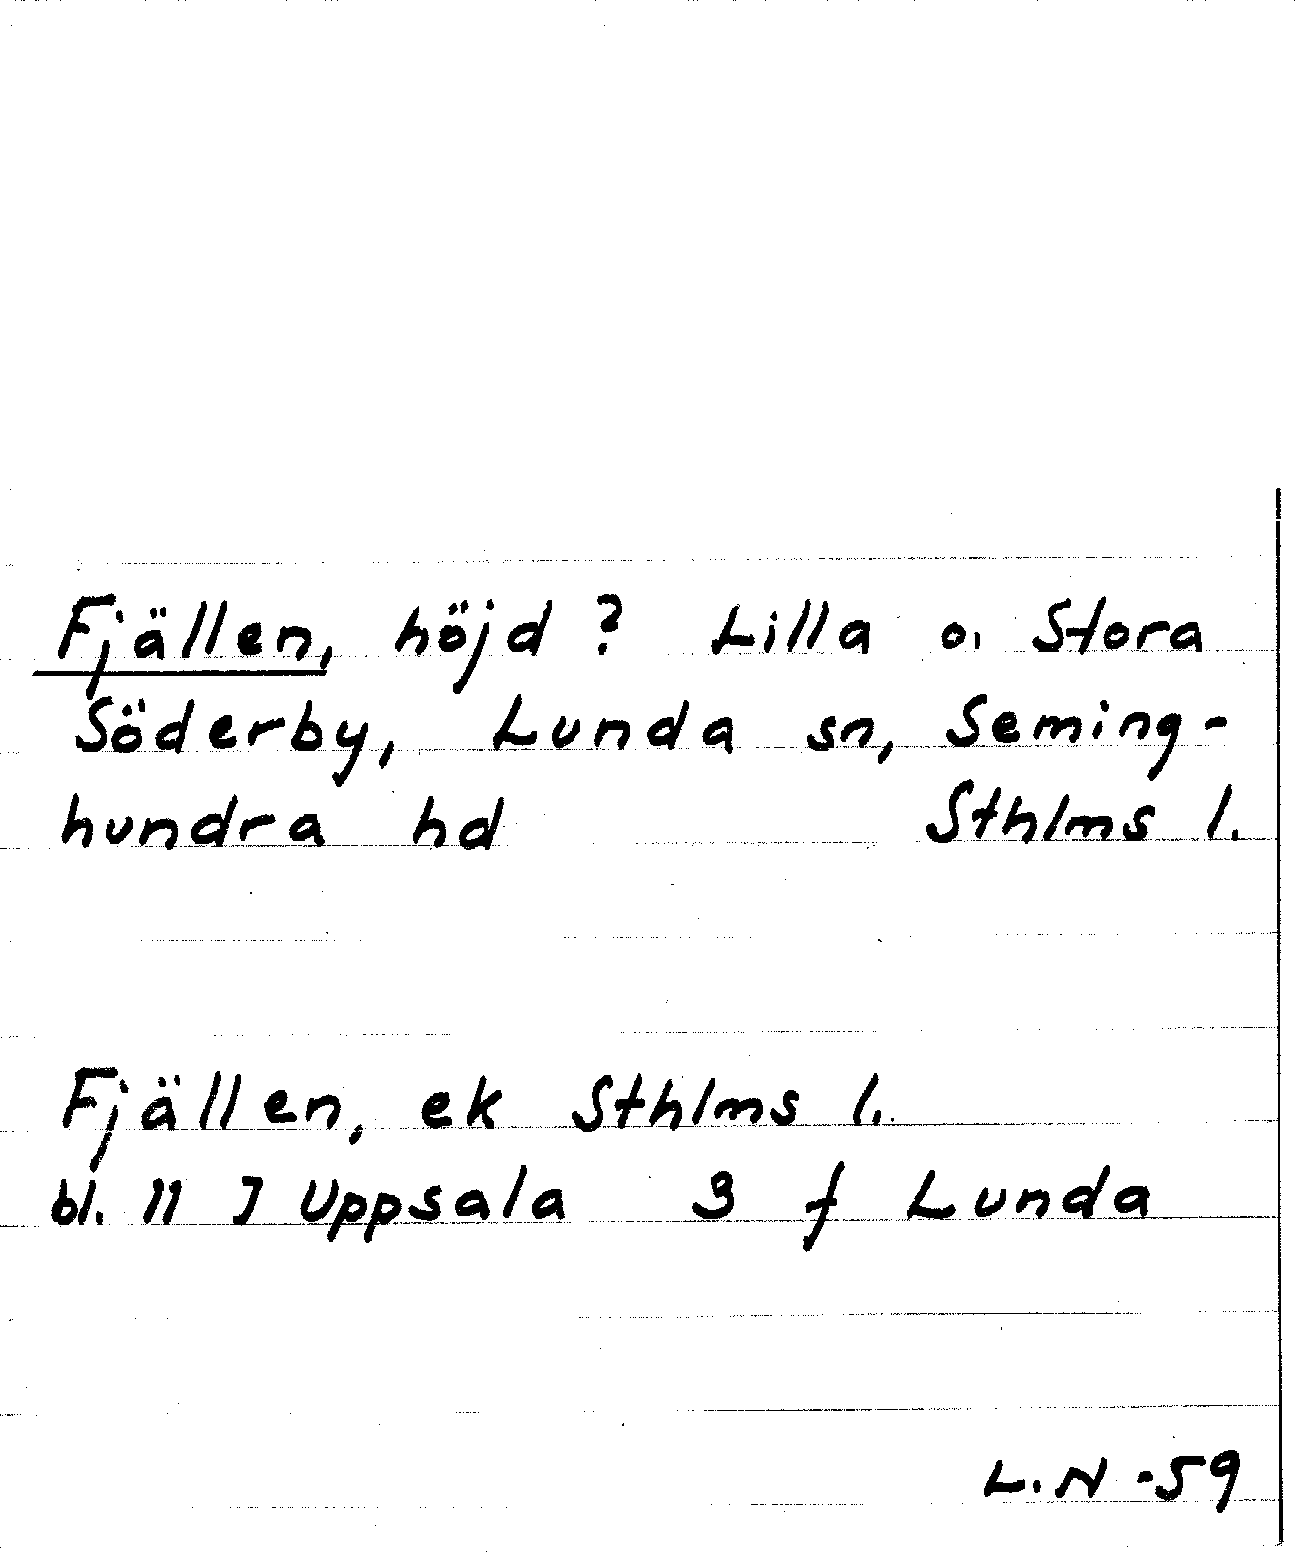 Fjällen, höjd? Lilla o. Stora
Söderby, Lunda sn, Seming-
hundra hd Sthlms l.
Fjällen, ek Sthlms l.
bl. 11 J Uppsala 3 f Lunda
L.N -59